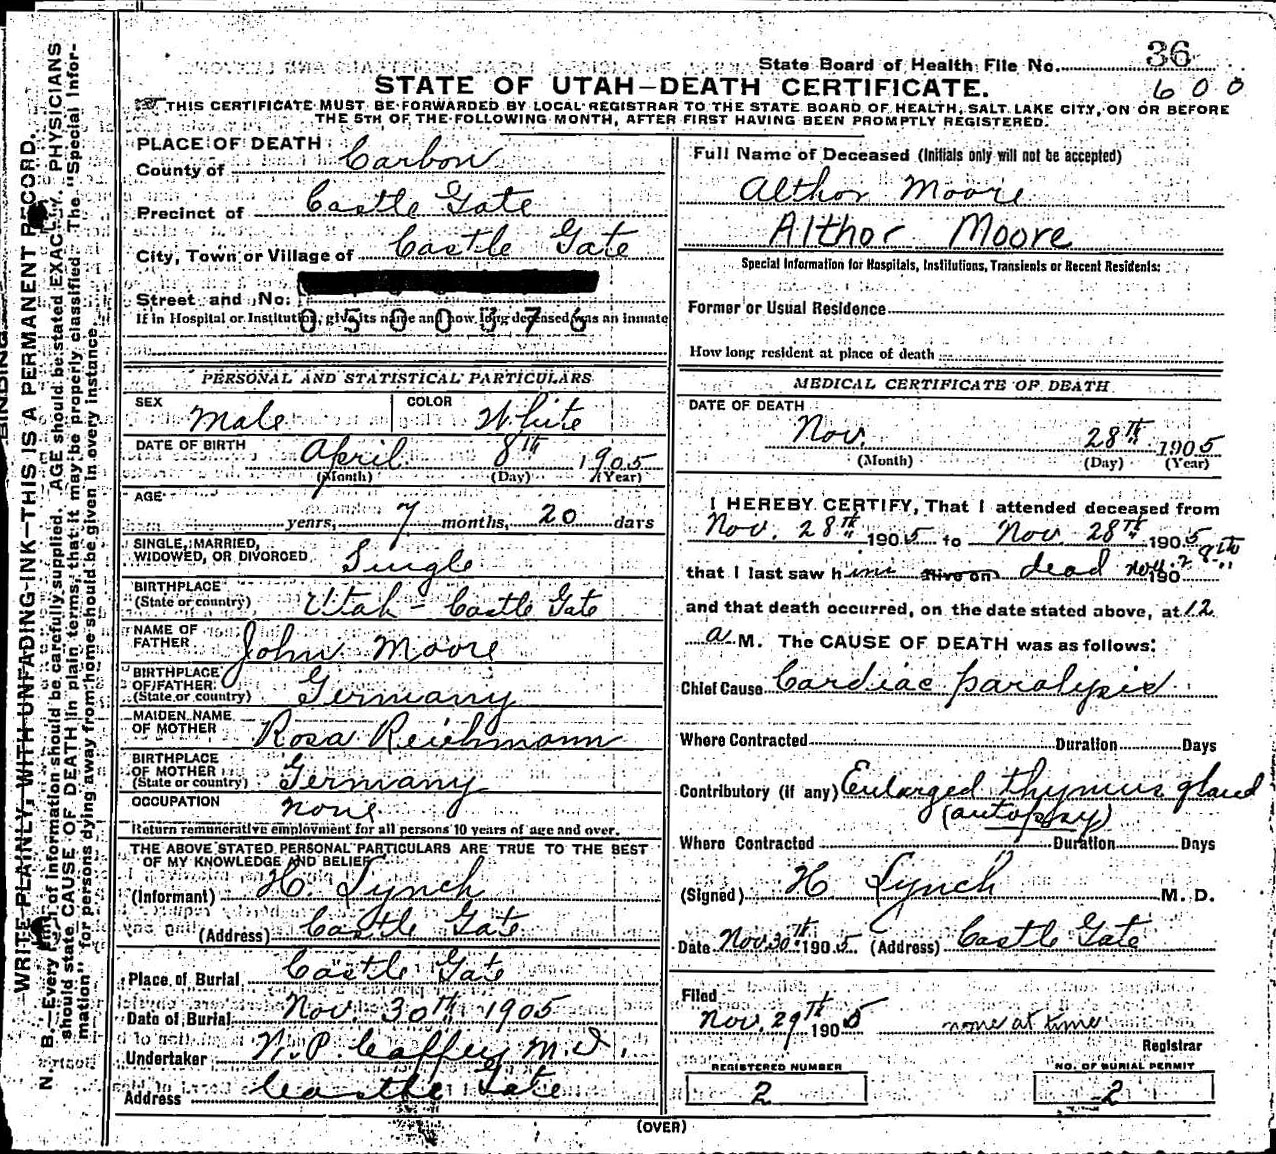 State Board of Health File No. 36
600
STATE OF UTAH—DEATH CERTIFICATE.
THIS CERTIFICATE MUST BE FORWARDED BY LOCAL REGISTRAR TO THE STATE BOARD OF HEALTH, SALT LAKE CITY, ON OR BEFORE
THE 5TH OF THE FOLLOWING MONTH, AFTER FIRST HAVING BEEN PROMPTLY REGISTERED.
PLACE OF DEATH
County of Carbon
Precinct of Castle Gate
City, Town or Village of Castle Gate
Street and No.
If in Hospital or Institution, give its name and how long deceased was an inmate
0500376
PERSONAL AND STATISTICAL PARTICULARS
SEX Male COLOR White
DATE OF BIRTH April 8th 1905
(Month) (Day) (Year)
AGE
years, 7 months, 20 days
SINGLE, MARRIED,
WIDOWED, OR DIVORCED Single
BIRTHPLACE
(State or country) Utah - Castle Gate
NAME OF
FATHER John Moore
BIRTHPLACE
OF FATHER
(State or country) Germany
MAIDEN NAME
OF MOTHER Rosa Reichmann
BIRTHPLACE
OF MOTHER
(State or country) Germany
OCCUPATION none
Return remunerative employment for all persons 10 years of age and over.
THE ABOVE STATED PERSONAL PARTICULARS ARE TRUE TO THE BEST
OF MY KNOWLEDGE AND BELIEF
(Informant) H. Lynch
(Address) Castle Gate
Place of Burial Castle Gate
Date of Burial Nov. 30th 1905
Undertaker M.D.
Address Castle Gate
Full Name of Deceased (Initials only will not be accepted)
Althor Moore
Althor Moore
Special Information for Hospitals, Institutions, Transients or Recent Residents:
Former or Usual Residence
How long resident at place of death
MEDICAL CERTIFICATE OF DEATH
DATE OF DEATH
Nov. 28th 1905
(Month) (Day) (Year)
I HEREBY CERTIFY, That I attended deceased from
Nov. 28th 1905 to Nov. 28th 1905
that I last saw him alive on dead Nov. 28th 190
and that death occurred, on the date stated above, at 12
a M. The CAUSE OF DEATH was as follows:
Chief Cause Cardiac paralysis
Where Contracted Duration Days
Contributory (if any) Enlarged thymus gland
(autopsy)
Where Contracted Duration Days
(Signed) H Lynch M. D.
Date Nov. 30th 1905 (Address) Castle Gate
Filed
Nov. 29th 1905 none at time
Registrar
REGISTERED NUMBER
2
NO. OF BURIAL PERMIT
2
(OVER)
BINDING
WRITE PLAINLY, WITH UNFADING INK—THIS IS A PERMANENT RECORD.
N. B.—Every item of information should be carefully supplied. AGE should be stated EXACTLY. PHYSICIANS
should state CAUSE OF DEATH in plain terms, that it may be properly classified. The "Special Infor-
mation" for persons dying away from home should be given in every instance.